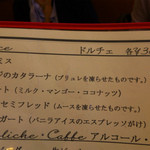 ce ドルチェ 各¥3
ミス
ジのカタラーナ (ブリュレを凍らせたものです。)
ート (ミルク・マンゴー・ココナッツ)
セミフレッド (ムースを凍らせたものです。)
ガート (バニラアイスのエスプレッソがけ)
liche・Caffe アルコール・